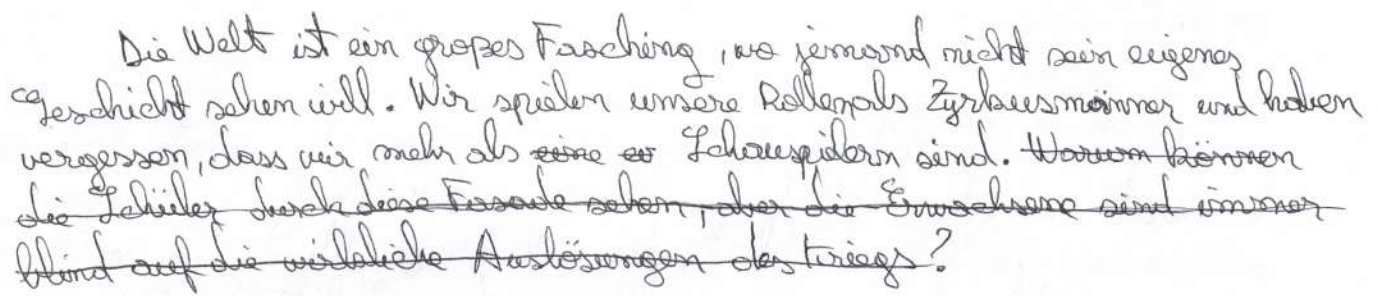 Die Welt ist ein großes Fasching, wo jemand nicht sein eigenes
Geschicht sehen will. Wir spielen unsere Rollen als Zyrkusmänner und haben
vergessen, dass wir mehr als eine Schauspidern sind. Warum können
die Schüler durch diese Fasade sehen, aber die Erwachsene sind immer
blind auf die wirkliche Auslösungen des Kriegs?